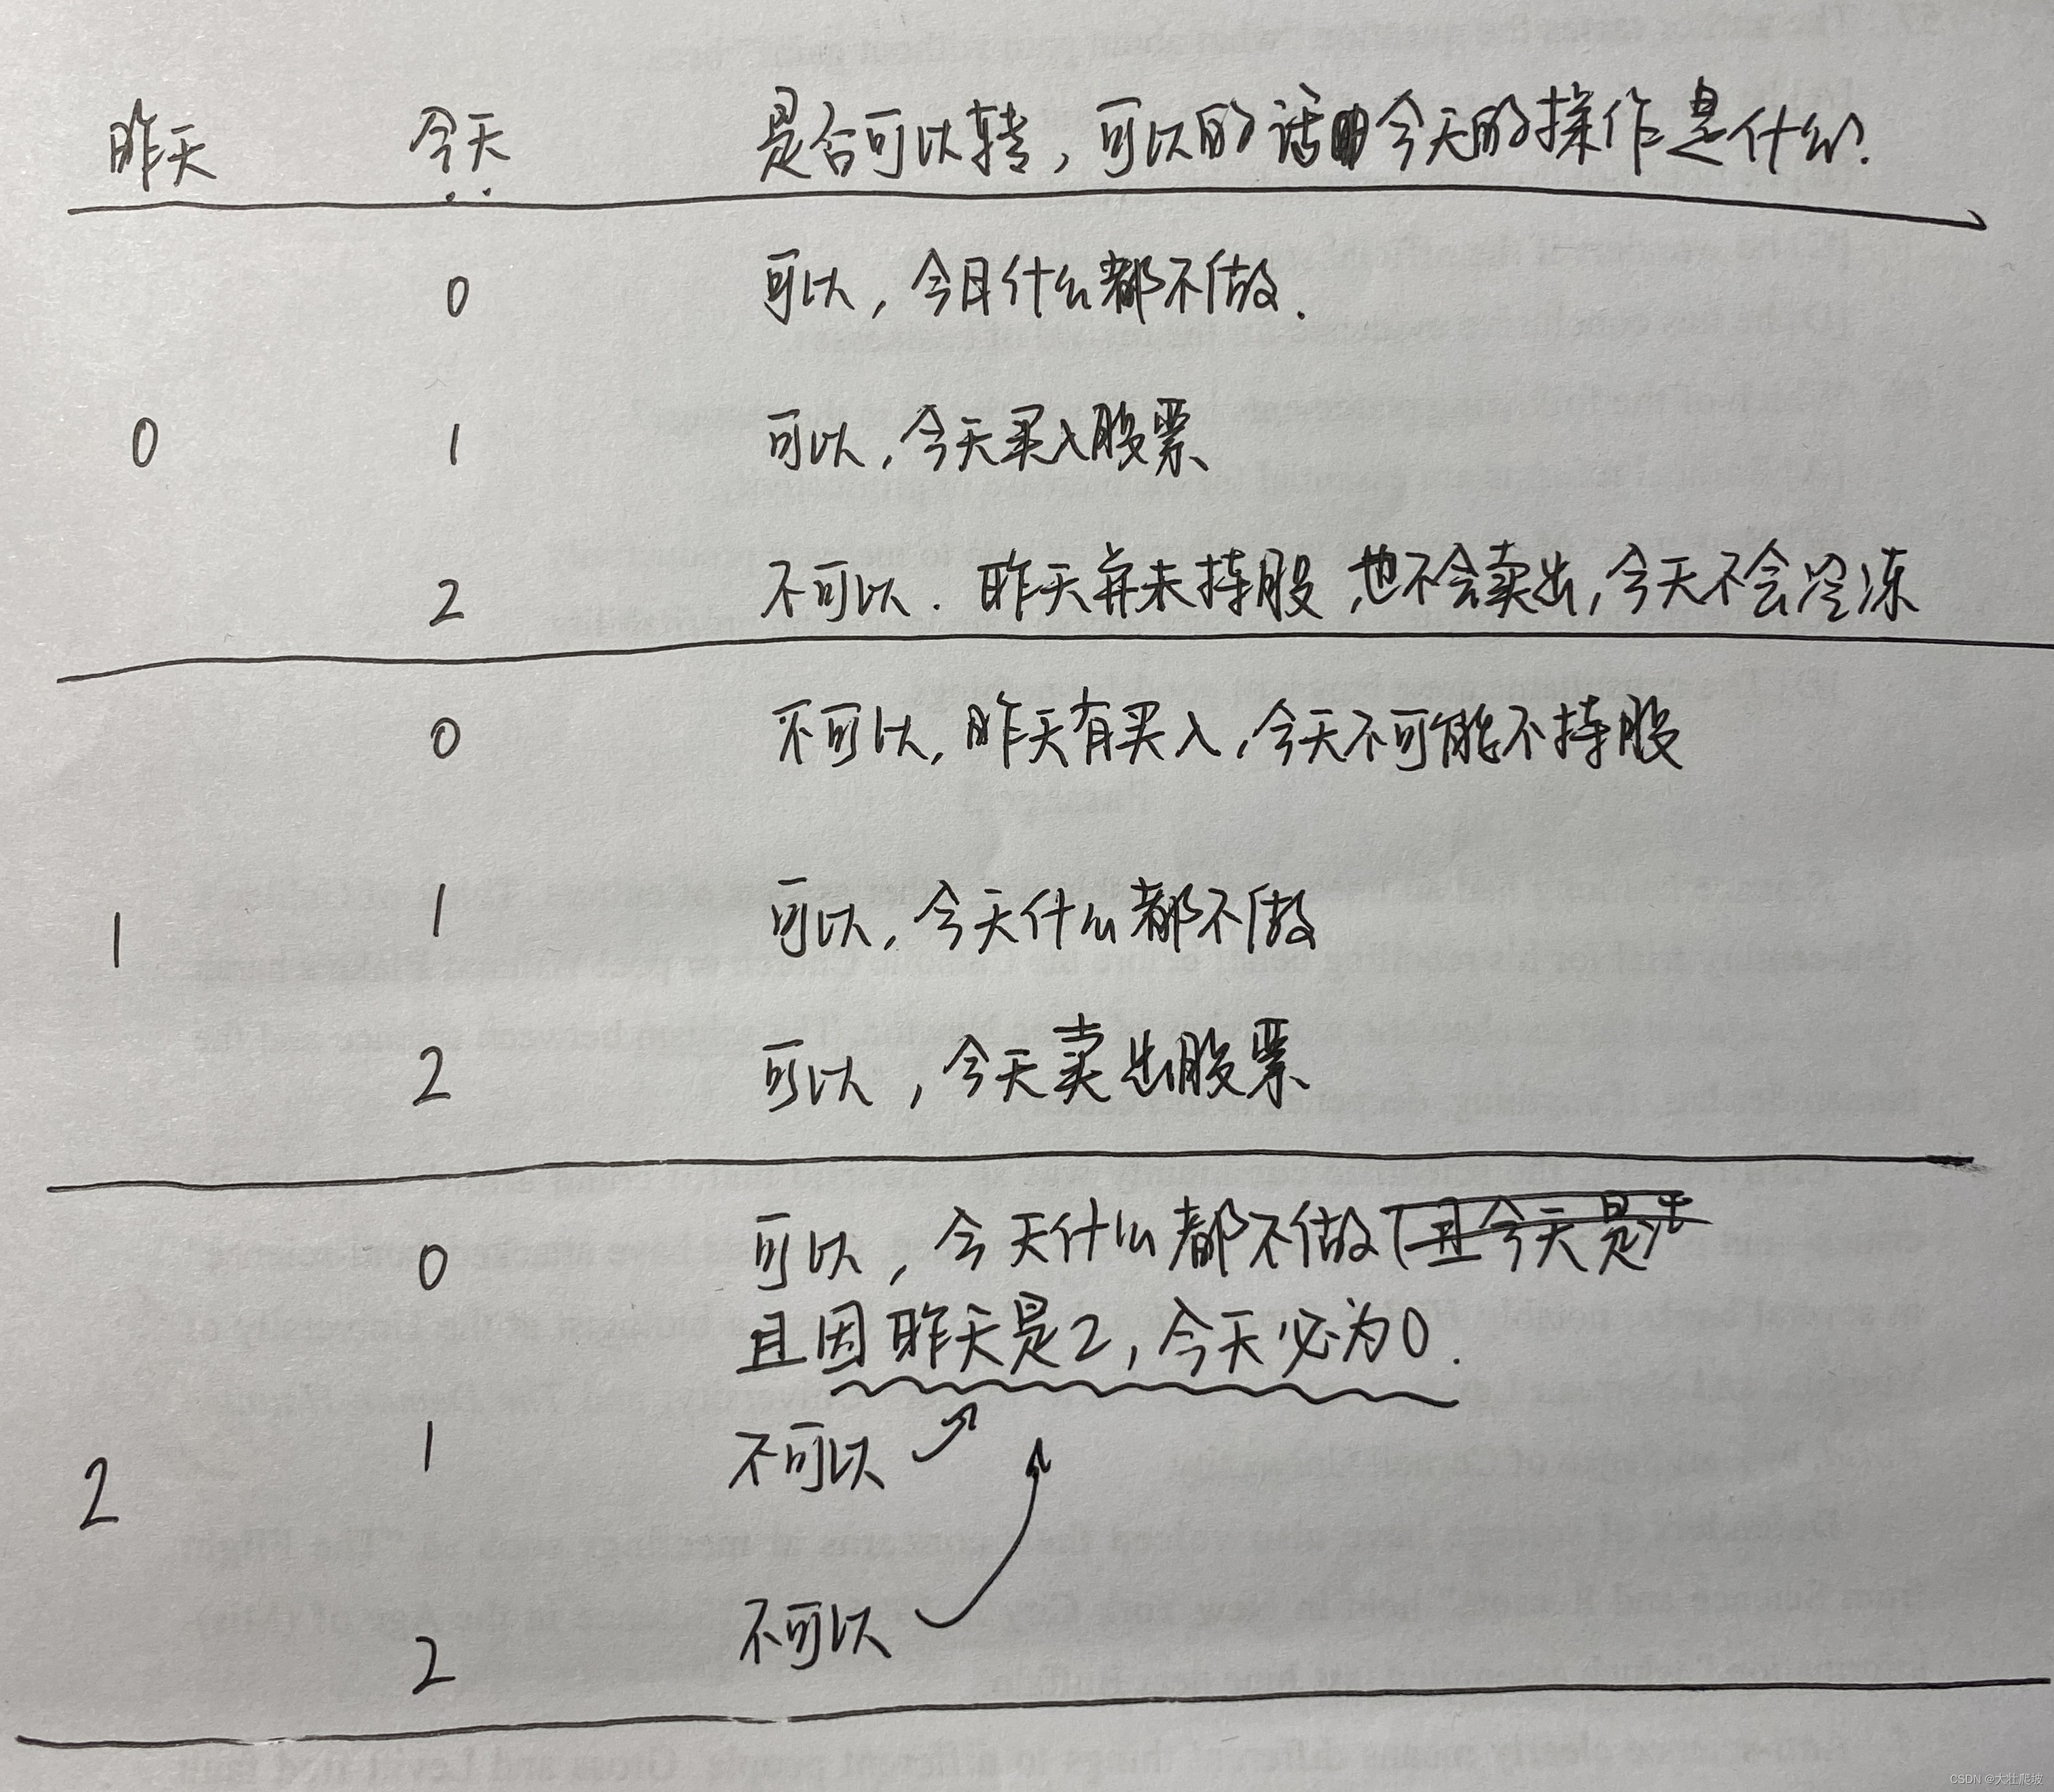 昨天 今天 是否可以转，可以的话今天的操作是什么.
0 可以，今日什么都不做.
0 1 可以，今天买入股票
2 不可以. 昨天并未持股,也不会卖出,今天不会冷冻
0 不可以,昨天有买入,今天不可能不持股
1 1 可以,今天什么都不做
2 可以,今天卖出股票
0 可以,今天什么都不做
且因昨天是2,今天必为0.
1 不可以
2
2 不可以
CSDN @大壮爬坡